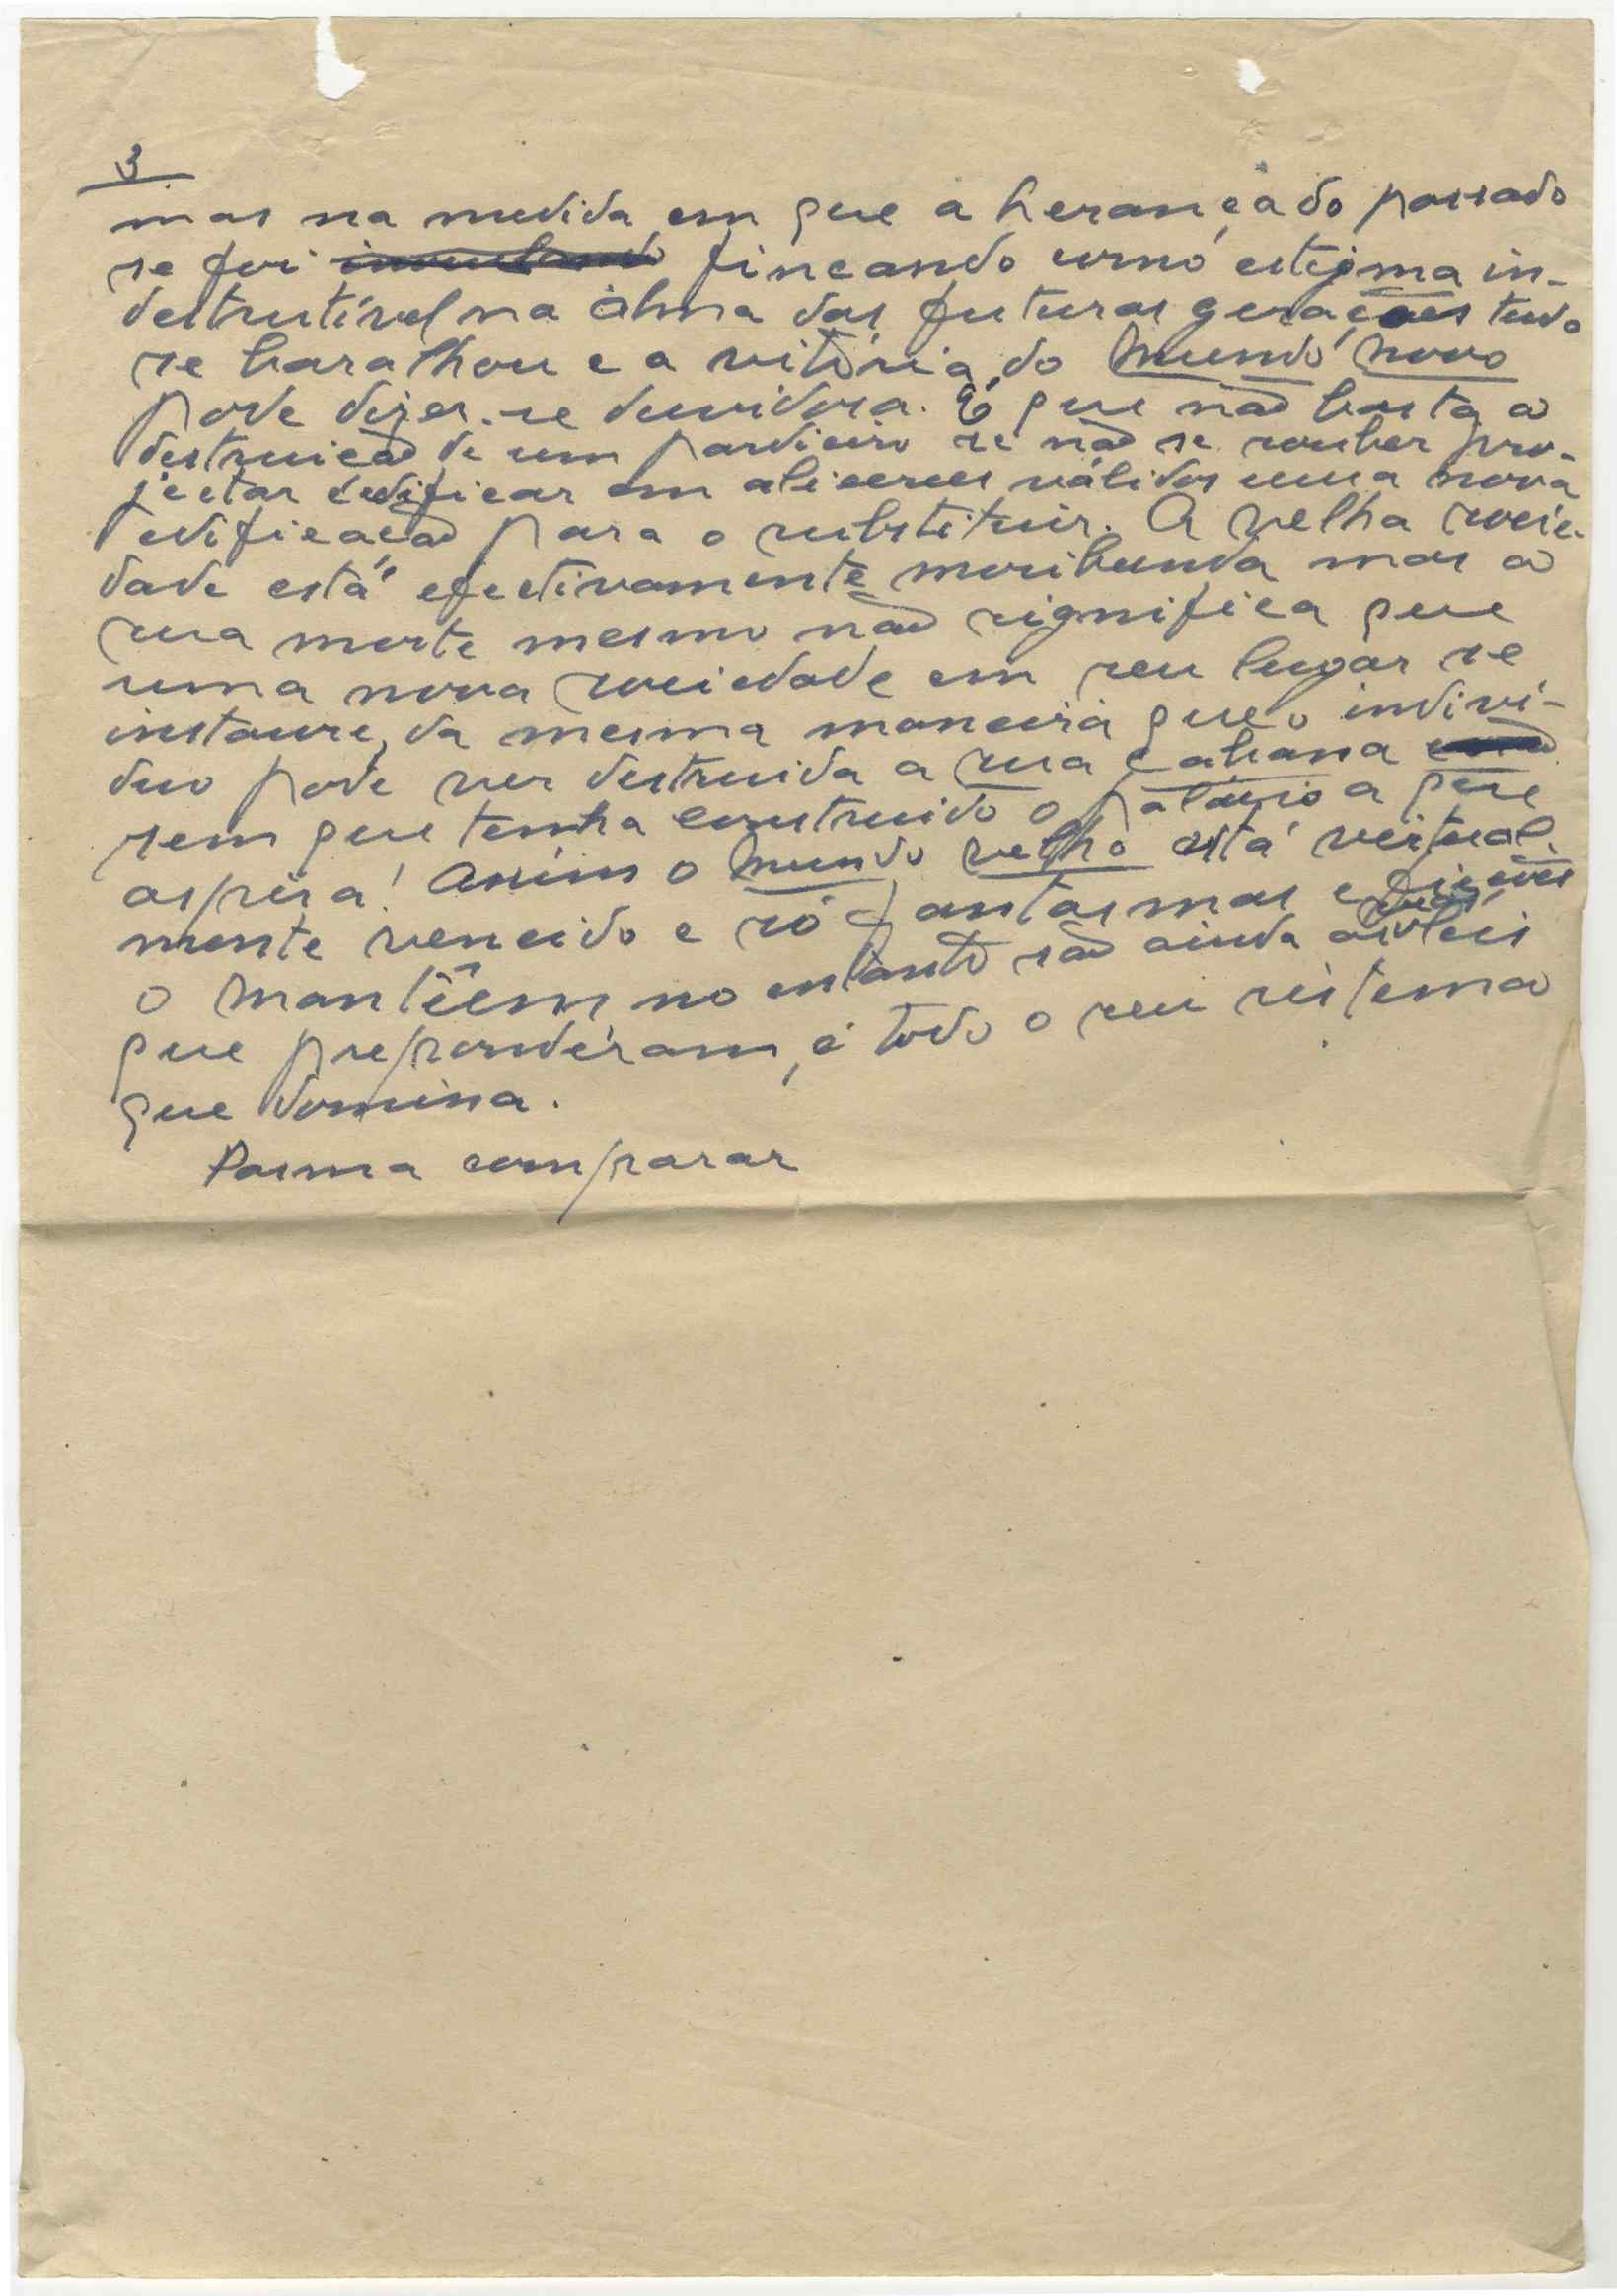 3
mas na medida em que a herança do passado
se foi fincando como estigma in-
destrutível na alma das futuras gerações tudo
se baralhou e a vitória do mundo novo
pode dizer-se duvidosa. É que não basta a
destruição de um pardieiro se não se souber pro-
jectar edificar em alicerces válidos uma nova
edificação para o substituir. A velha socie-
dade está efectivamente moribunda mas a
sua morte mesmo não significa que
uma nova sociedade em seu lugar se
instaure, da mesma maneira que o indiví-
duo pode ver destruida a sua cabana
sem que tenha construido o palácio a que
aspira! Assim o mundo velho está virtual-
mente vencido e só fantasmas e ficções
o mantêem no entanto são ainda as suas leis
que preponderam, é todo o seu sistema
que domina.
Pasma comparar